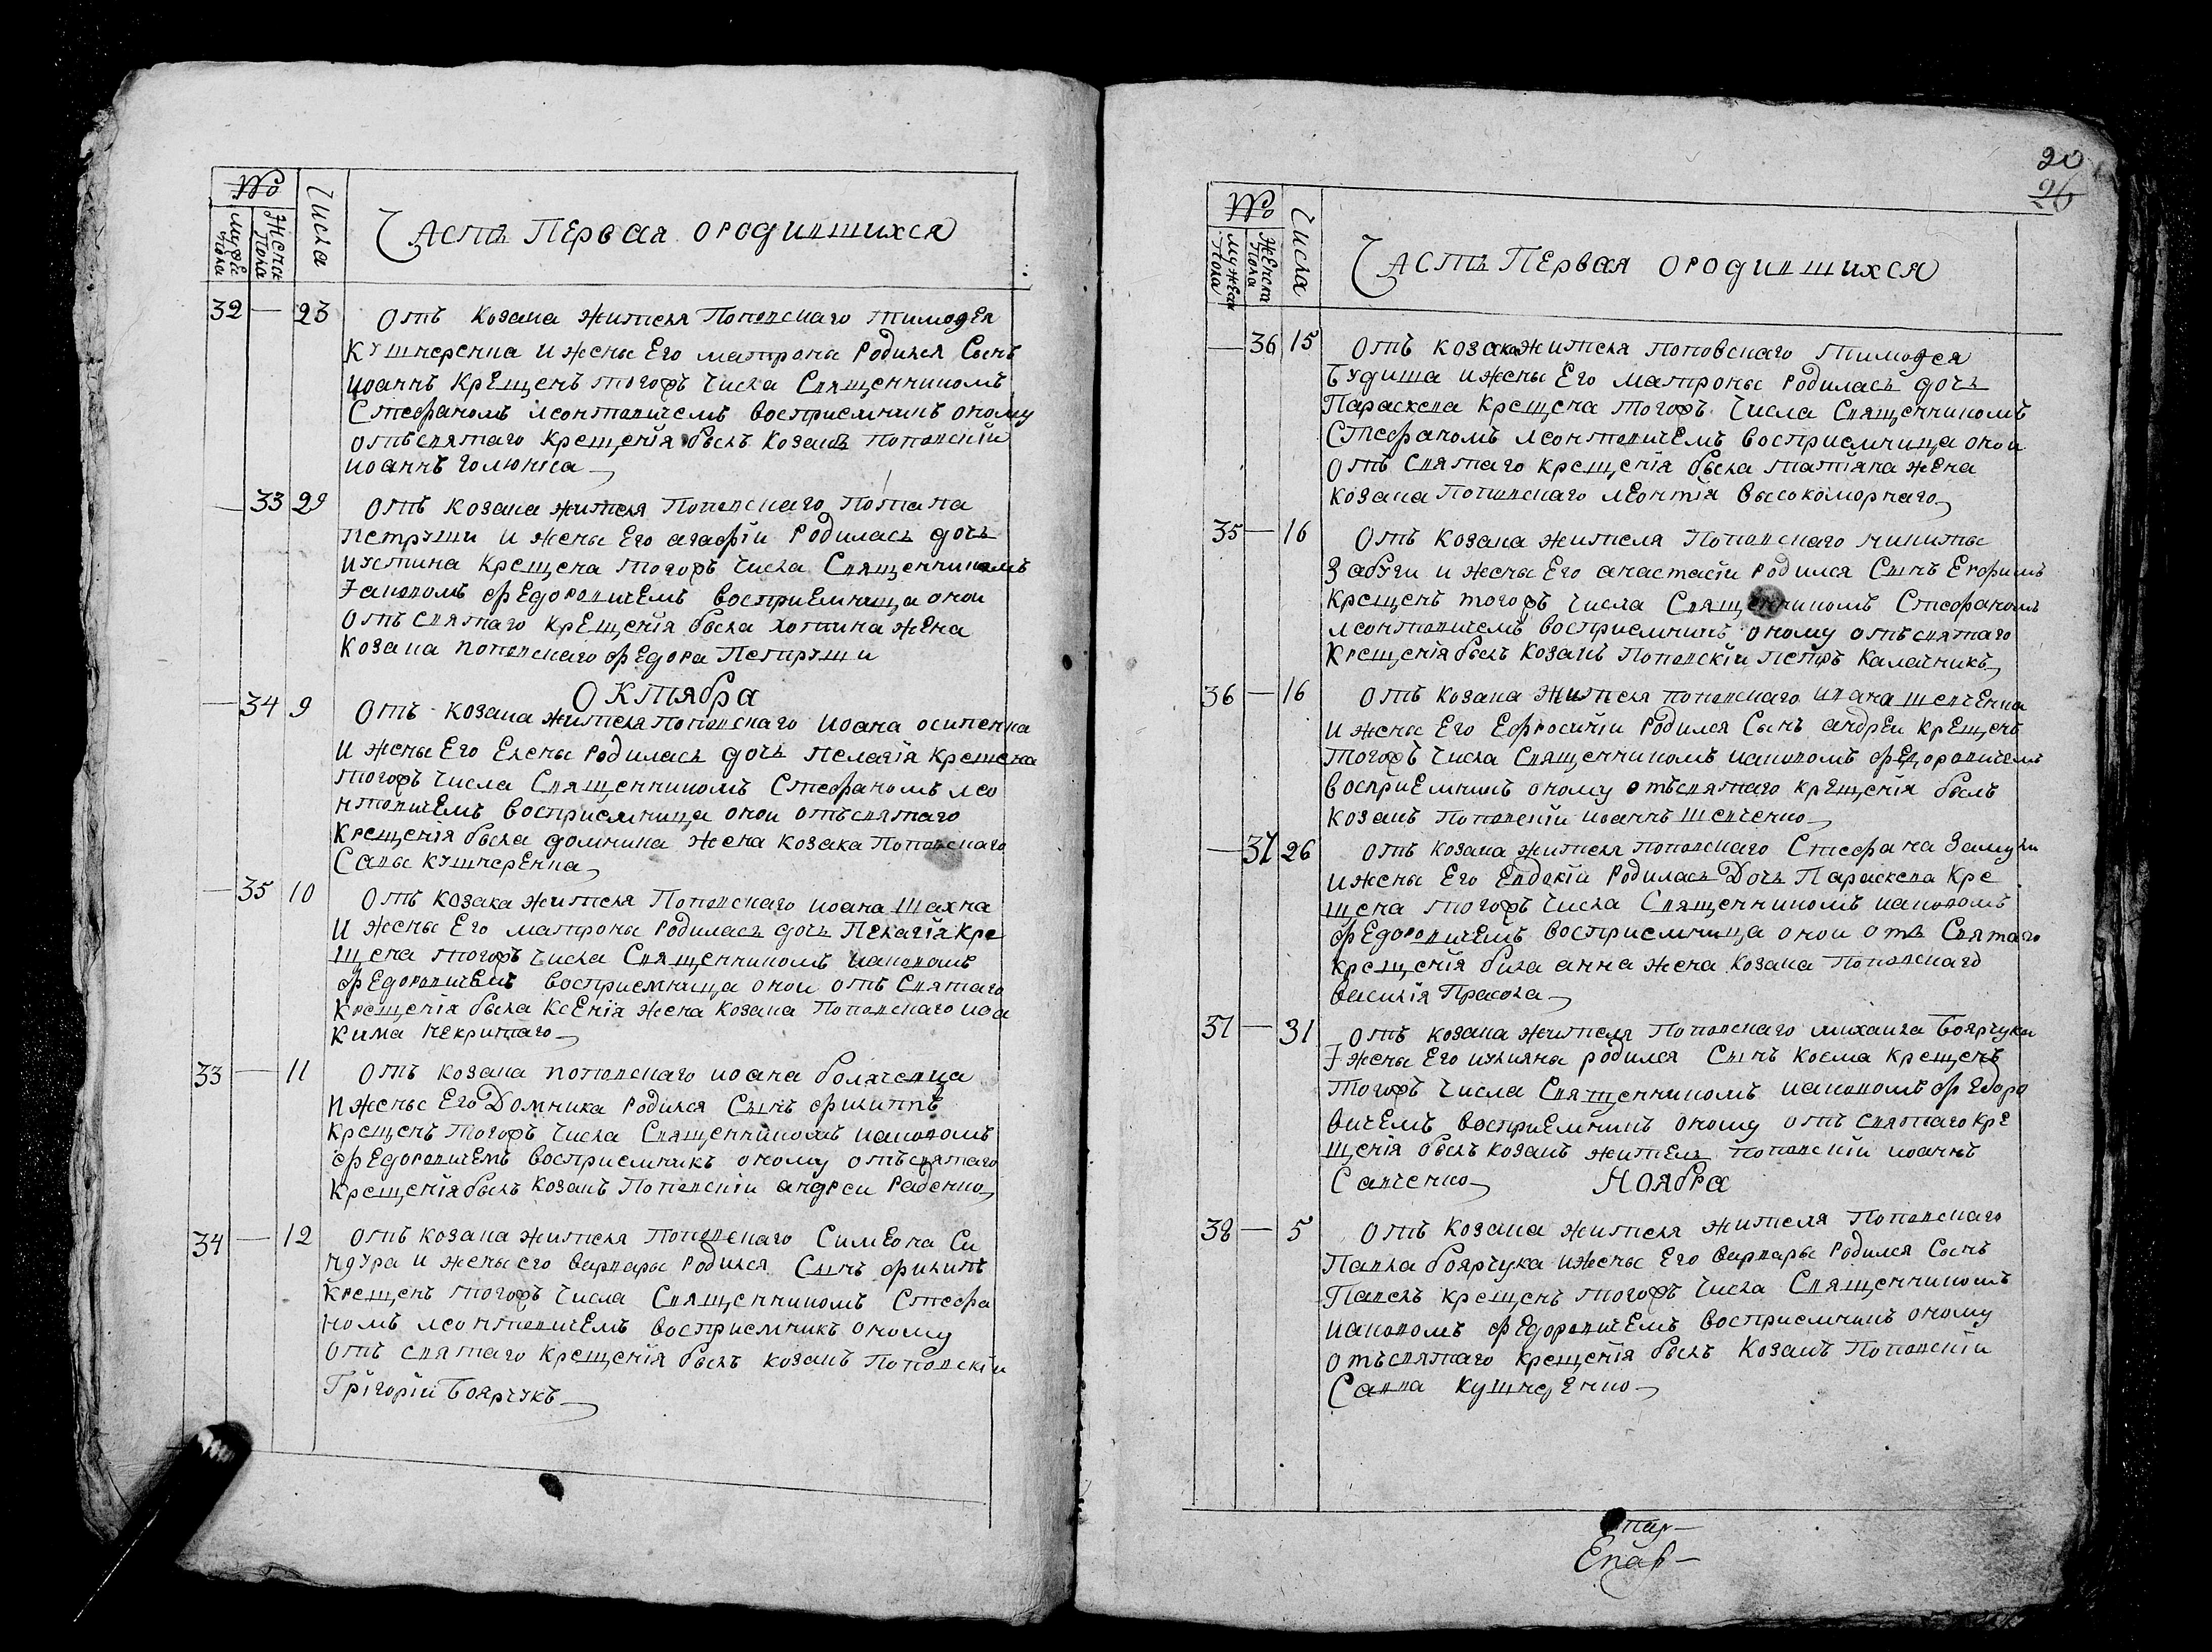 №
Мужеска Пола
Женска Пола
Числа
Часть Первая ородившихся
32 — 23 Отъ козака жителя Поповскаго тимофея
Кушнеренка и жены Его матроны Родился Сынъ
иоаннъ Крещенъ тогожъ Числа Священникомъ
Стефаномъ леонтовичемъ восприемникъ оному
отъ святаго крещенія былъ козакъ поповскій
иоаннъ голюнка
— 33 29 Отъ козака жителя Поповскаго потапа
петруши и жены Его агафіи Родилась дочь
иустина Крещена тогожъ Числа Священникомъ
Іаковомъ федоровичемъ восприемница оной
отъ святаго крещенія была хотина жена
козака поповскаго федора Петруши
Октября
— 34 9 Отъ козака жителя поповскаго иоана осипенка
и жены Его Елены Родилась дочь пелагія крещена
тогожъ Числа Священникомъ Стефаномъ лео
нтовичемъ восприемница оной отъ святаго
Крещенія была домникa жена козака Поповскаго
Савы кушнеренка
— 35 10 Отъ козака жителя Поповскаго иоана Шахна
и жены Его матроны Родилась дочь Пелагія кре
щена тогожъ Числа Священникомъ иаковомъ
федоровичемъ восприемница оной отъ Святаго
Крещенія была Ксенія жена козака Поповскаго иоа
кима некритаго
33 — 11 Отъ козака поповскаго иоана
и жены Его Домника Родился Сынъ филиппъ
крещенъ тогожъ Числа Священникомъ иаковомъ
федоровичемъ восприемникъ оному отъ святаго
крещенія былъ козакъ Поповскій андреи Раденко
34 — 12 Отъ козака жителя Поповскаго Симеона Си
ндура и жены его варвары Родился Сынъ филипъ
Крещенъ тогожъ Числа Священникомъ Стефа
номъ леонтовичемъ восприемникъ оному
отъ святаго крещенія былъ козакъ поповскій
Григорій Боярчукъ
20
26
№
Мужеска Пола
Женска Пола
Числа
Часть Первая ородившихся
— 36 15 Отъ козака жителя поповскаго тимофея
Будиша и жены Его матроны родилась дочь
Параскева крещена тогожъ Числа Священникомъ
Стефаномъ леонтовичемъ восприемница оной
отъ святаго крещенія была татіяна жена
козака Поповскаго леонтія высокоморнаго
35 — 16 Отъ козака жителя Поповскаго никиты
Забуги и жены Его анастасіи родился Сынъ Ефимъ
Крещенъ тогожъ Числа Священникомъ Стефаномъ
леонтовичемъ восприемникъ оному отъ святаго
Крещенія былъ козакъ Поповскій петръ Калачникъ
36 — 16 Отъ козака жителя поповскаго ивана шевченка
и жены Его Ефросиніи Родился Сынъ андреи крещенъ
тогожъ Числа Священникомъ иаковомъ федоровичемъ
восприемникъ оному отъ святаго крещенія былъ
козакъ Поповскій иоаннъ шевченко
— 37 26 Отъ козака жителя поповскаго Стефана
и жены Его Евдокіи Родилась Дочь Параскева Кре
щена тогожъ Числа Священникомъ иаковомъ
федоровичемъ восприемница оной отъ Святаго
крещенія была анна жена козака Поповскаго
василія Прасола
37 — 31 Отъ козака жителя Поповскаго михаила Боярчука
І жены Его иулияны родился Сынъ Косма крещенъ
тогожъ Числа Священникомъ иаковомъ федоро
вичемъ восприемникъ оному отъ святаго кре
щенія былъ козакъ житель поповскій иоаннъ
Савченко
Ноября
38 — 5 Отъ козака жителя жителя Поповскаго
Павла боярчука и жены Его варвары Родился Сынъ
Павелъ крещенъ тогожъ Числа Священникомъ
иаковомъ федоровичемъ восприемникъ оному
отъ святаго крещенія былъ Козакъ Поповскій
Савва кушнеренко